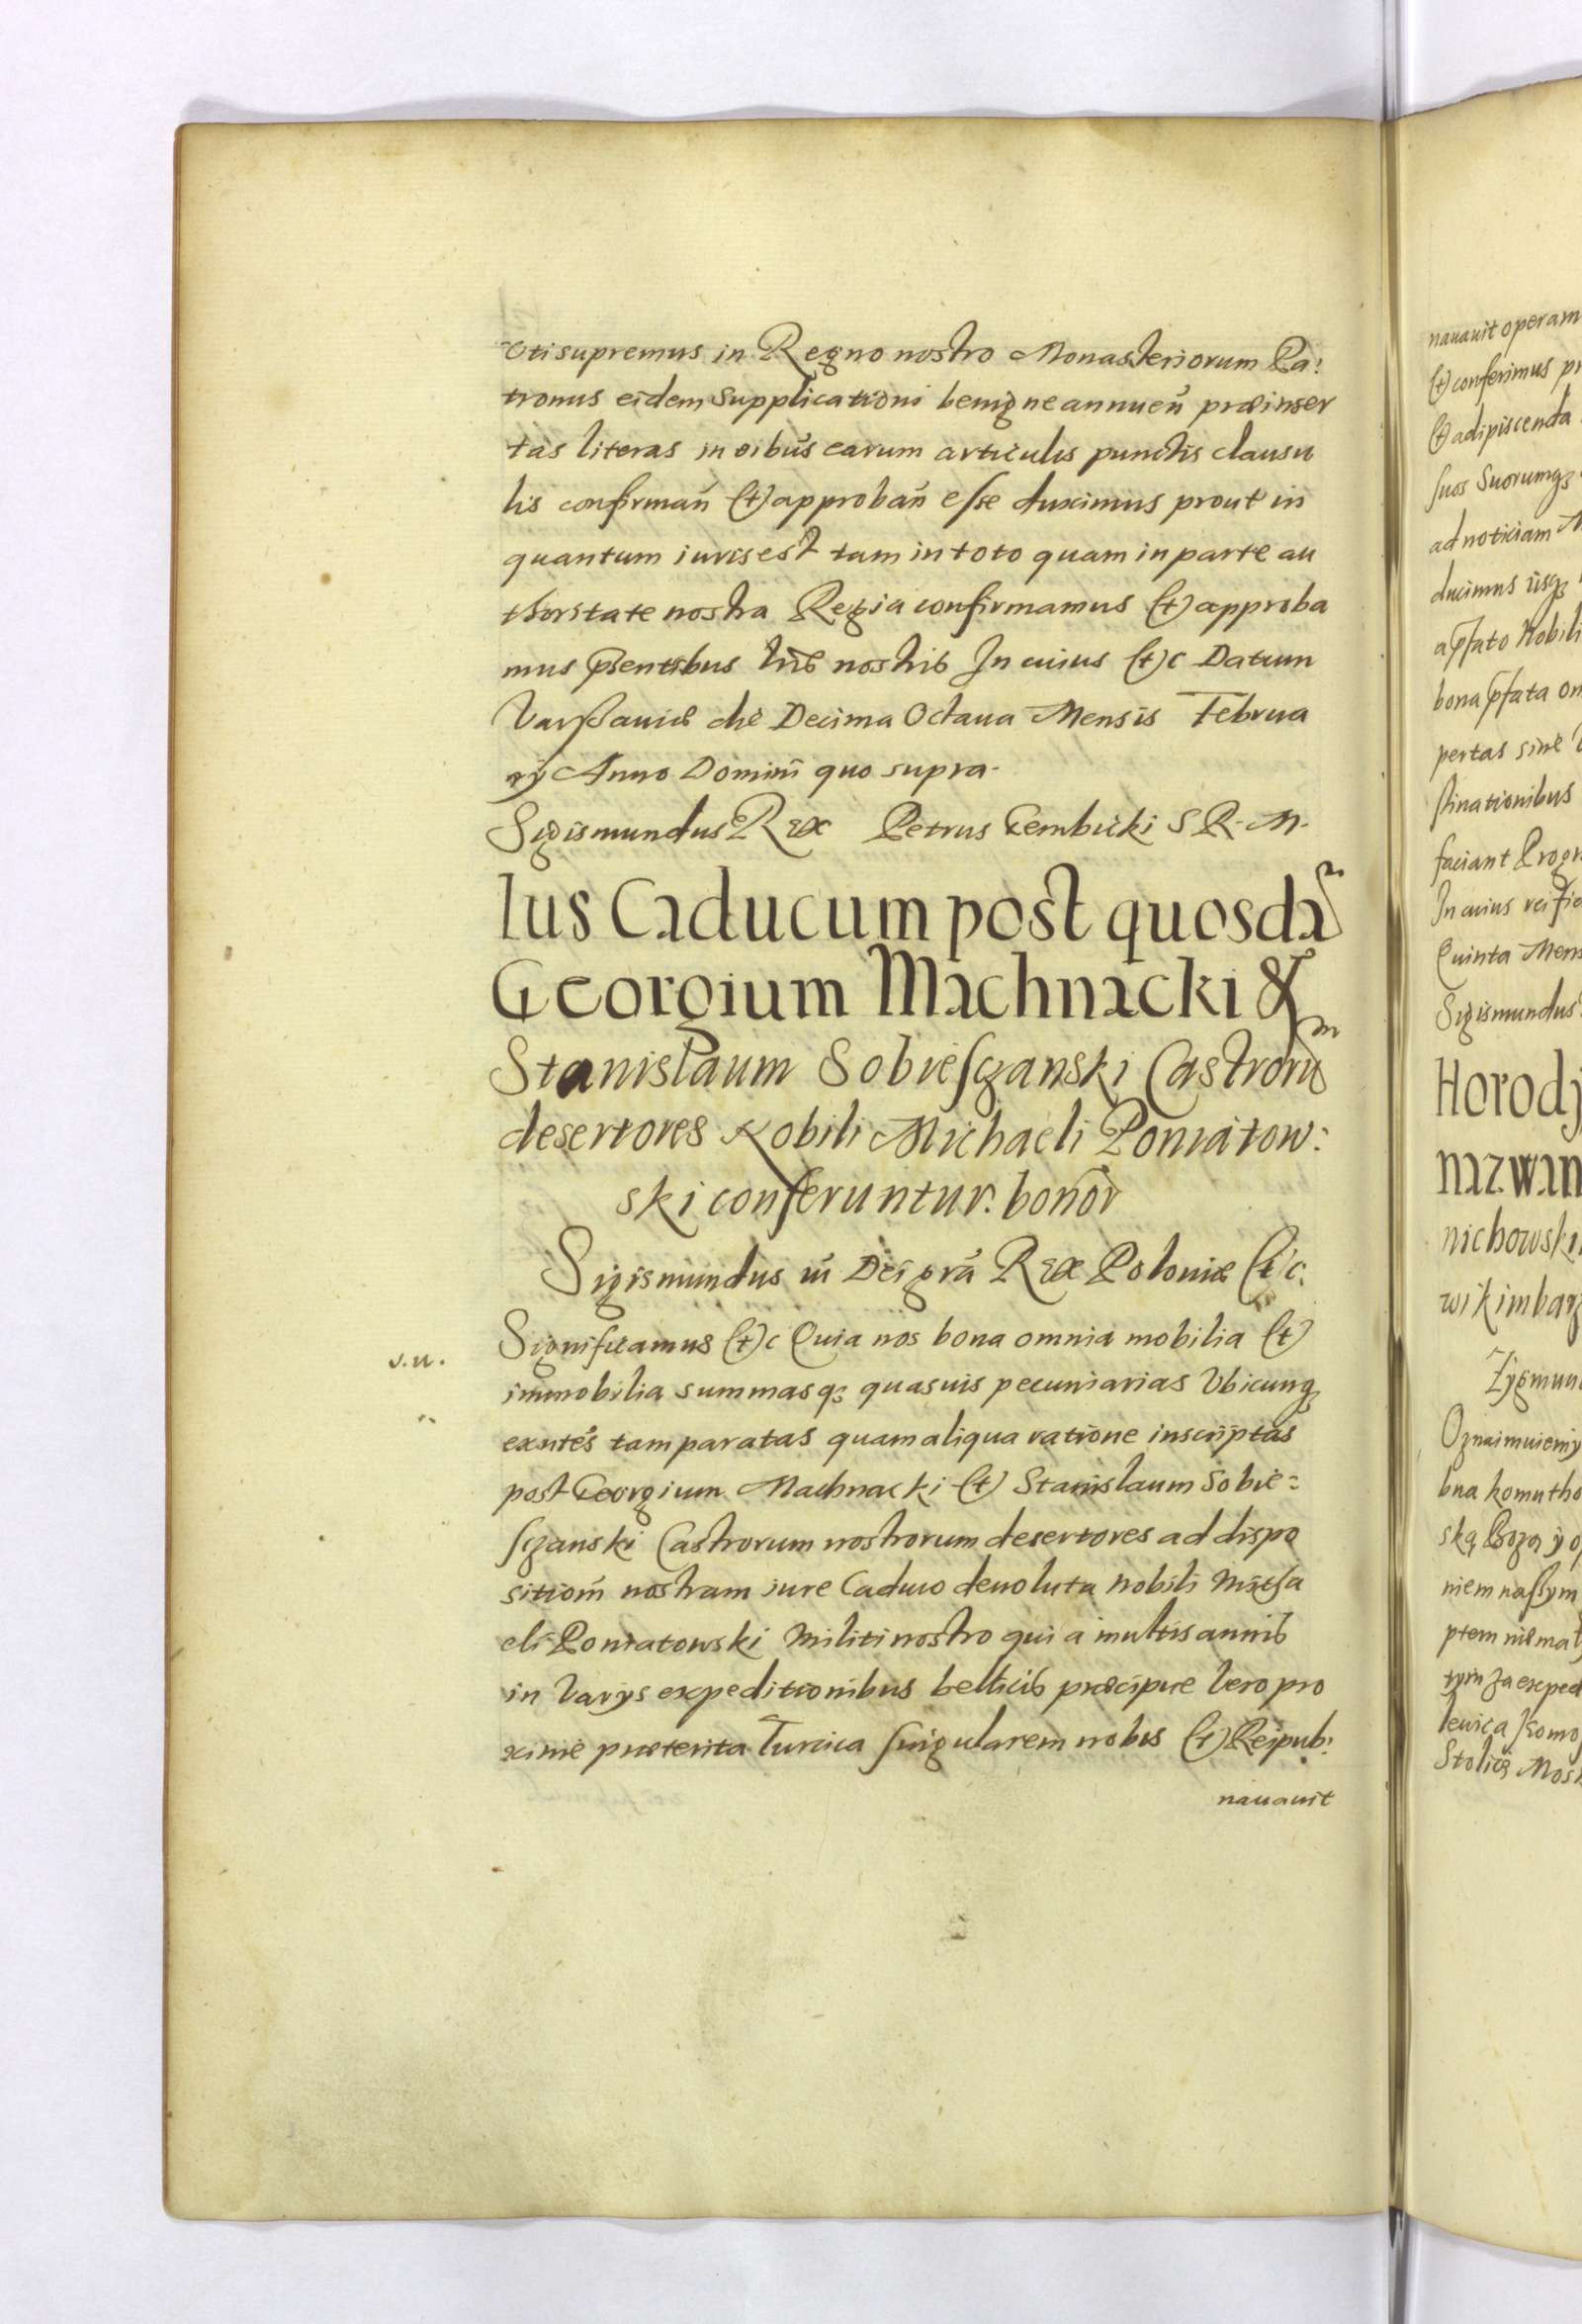 Vti supremus in Regno nostro Monasteriorum Pa:
tronus eidem supplicationi benigne annueñ præinser
tas literas in oibus earum articulis punctis clausu
lis confirmañ (et) approbañ esse duximus prout in
quantum iuris est tam in toto quam in parte au
thoritate nostra Regia confirmamus (et) approba
mus pñtibus lris nostris In cuius (et)c Datum
Varßauiæ die Decima Octaua Mensis Februa
rij Anno Domini quo supra.
Sigismundus Rex Petrus Gembicki S R. M.
Ius Caducum post quosdã
Georgium Machnacki &
Stanislaum Sobiesczanski Castrorũ
desertores Nobili Michaeli Poniatow:
ski conferuntur. bonor
Sigismundus iii Dei grã Rex Poloniæ (et)c:
Significamus (et)c Quia nos bona omnia mobilia (et)
v.u.
immobilia summasq; quasuis pecuniarias Vbicunq;
exñtes tam paratas quam aliqua ratione inscriptas
post Georgium Machnacki (et) Stanislaum Sobie:
sczanski Castrorum nostrorum desertores ad dispo
sitioñ nostram iure Caduco deuoluta Nobili Micha
eli Poniatowski Militi nostro qui a multis annis
in Varijs expeditionibus bellicis præcipue Vero pro
xime præterita Turcica singularem nobis (et) Reipub:
nauauit
nauauit operam
(et) conferimus
(et) adipiscenda
suos Suorumq;
ad noticiam
ducimus
a pfato Nobili
bona pfata
pertas sine
stinationibus
faciant
In cuius rei
Quinta
Sigismundus
Horodj
nazwan
nichowski
wikim
Zygmun
Oznaimuiemy
bna komu tho
ską Bozą y
niem naszym
ptem
tym za exped
Stolicę